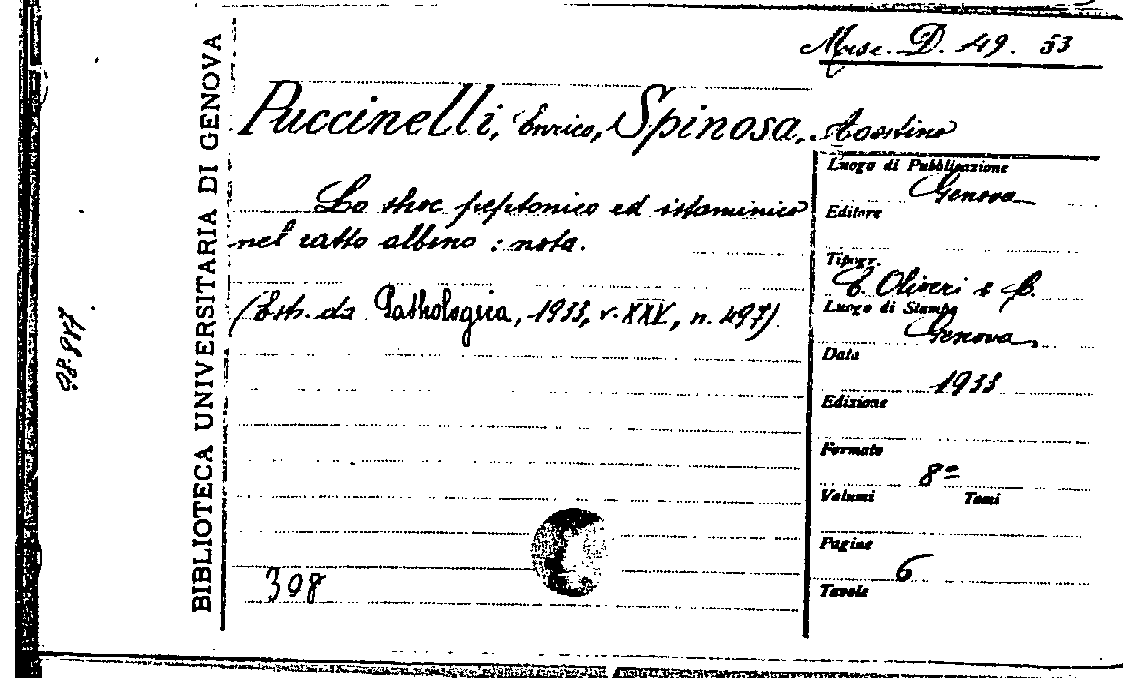 Misc. D. 49. 53
Puccinelli, Enrico, Spinosa, Agostino
Lo shoc peptonico ed istaminico
nel ratto albino : nota.
(Estr. da Pathologica, 1933, v. XXV, n. 497)
308
Luogo di Pubblicazione
Genova
Editore
Tipogr.
E. Oliveri e C.
Luogo di Stampa
Genova
Data
1933
Edizione
Formato
8º
Volumi Tomi
Pagine
6
Tavole
BIBLIOTECA UNIVERSITARIA DI GENOVA